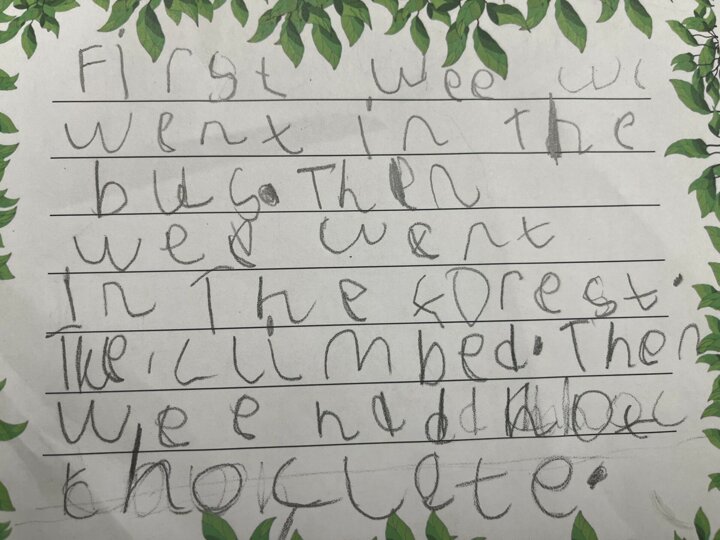 First wee
went in the
bus. Then
wee went
In The forest.
climbed. Then
wee hadd
choclete.